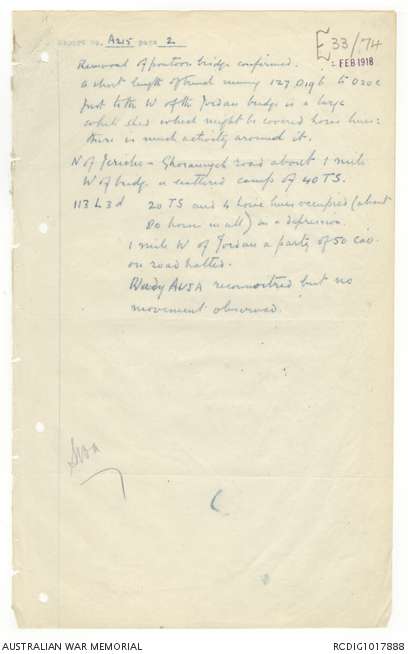 REPORT NO. A215 PAGE 2.
E 33/74
FEB 1918
Removal of pontoon bridge confirmed.
A short length of trench running 127 D19b to D20c
Just to the W of the Jordan bridge is a large
white shed which might be covered horse lines:
there is much activity around it.
N of Jericho - Ghoraniyeh road about 1 mile
W of bridge a scattered camp of 40 TS.
113 L3d 20 TS and 4 horse lines occupied (about
80 horses in all) in a depression.
1 mile W of Jordan a party of 50 cav.
on road halted.
Wady AUJA reconnoitred but no
movement observed.
AUSTRALIAN WAR MEMORIAL
RCDIG1017888